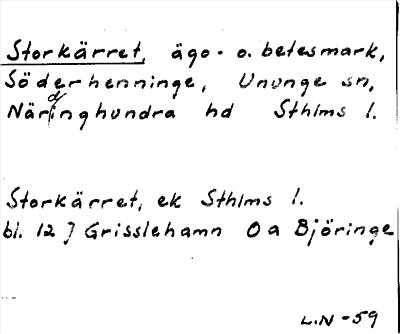 Storkärret, ägo- o. betesmark,
Söderhenninge, Ununge sn,
Närdinghundra hd Sthlms l.
Storkärret, ek Sthlms l.
bl. 12 J Grisslehamn Oa Björinge
L.N -59